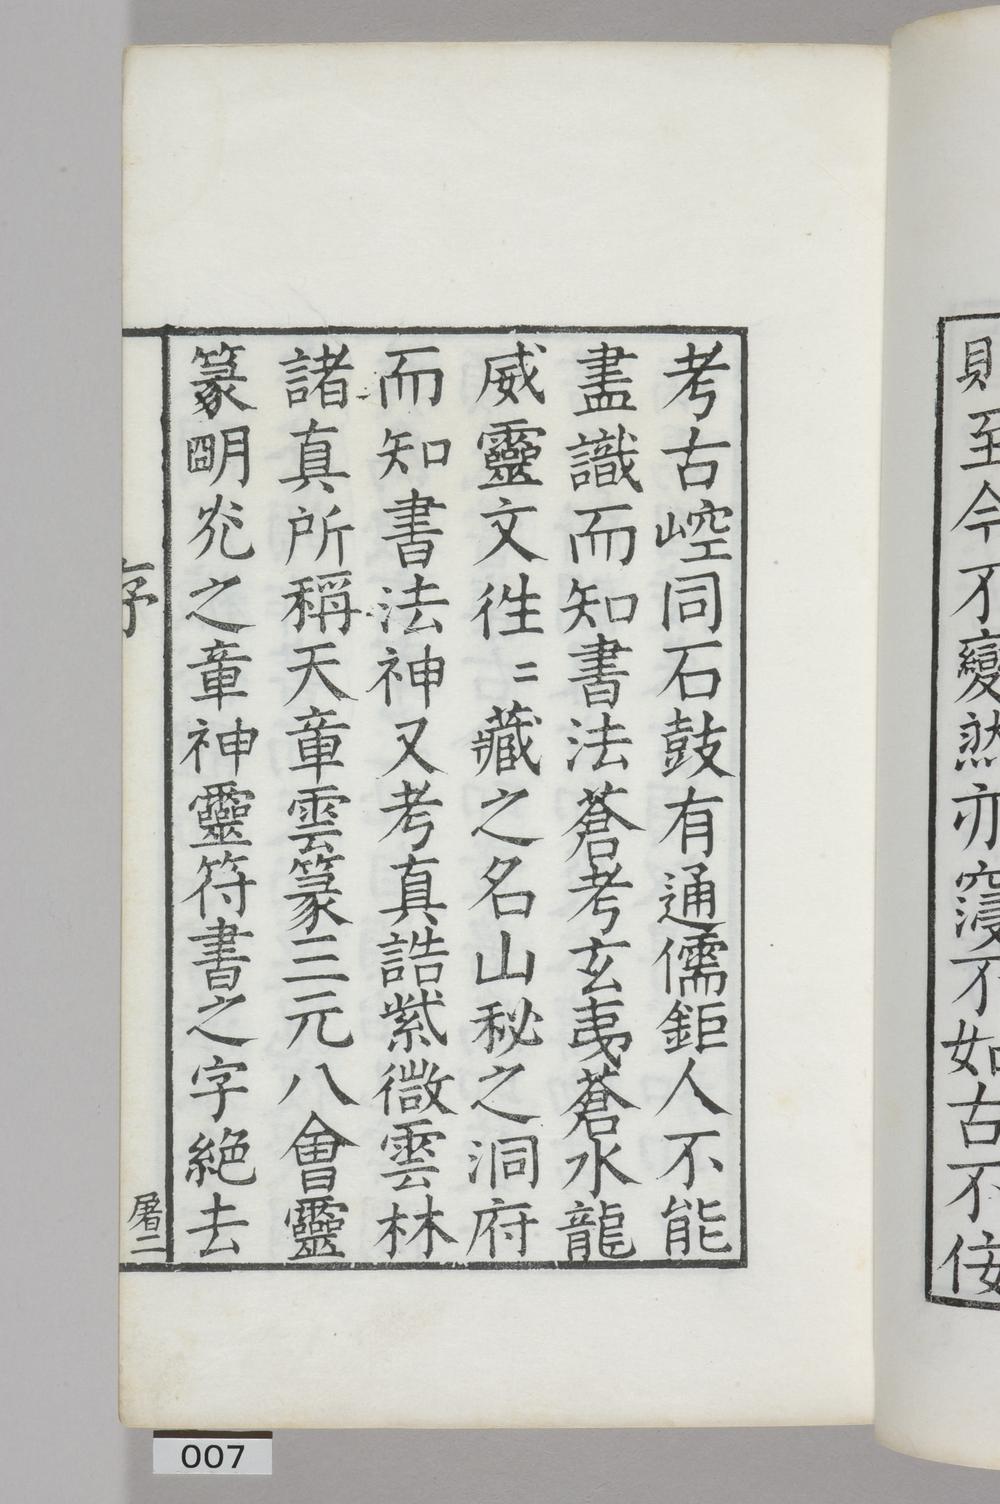 則至今不變然亦窾不如古不佞
考古崆同石鼓有通儒鉅人不能
盡識而知書法蒼考玄夷蒼水龍
威靈文徃〻藏之名山秘之洞府
而知書法神又考真誥紫微雲林
諸真所稱天章雲篆三元八會靈
篆明光之章神靈符書之字絶去
序
屠二
007